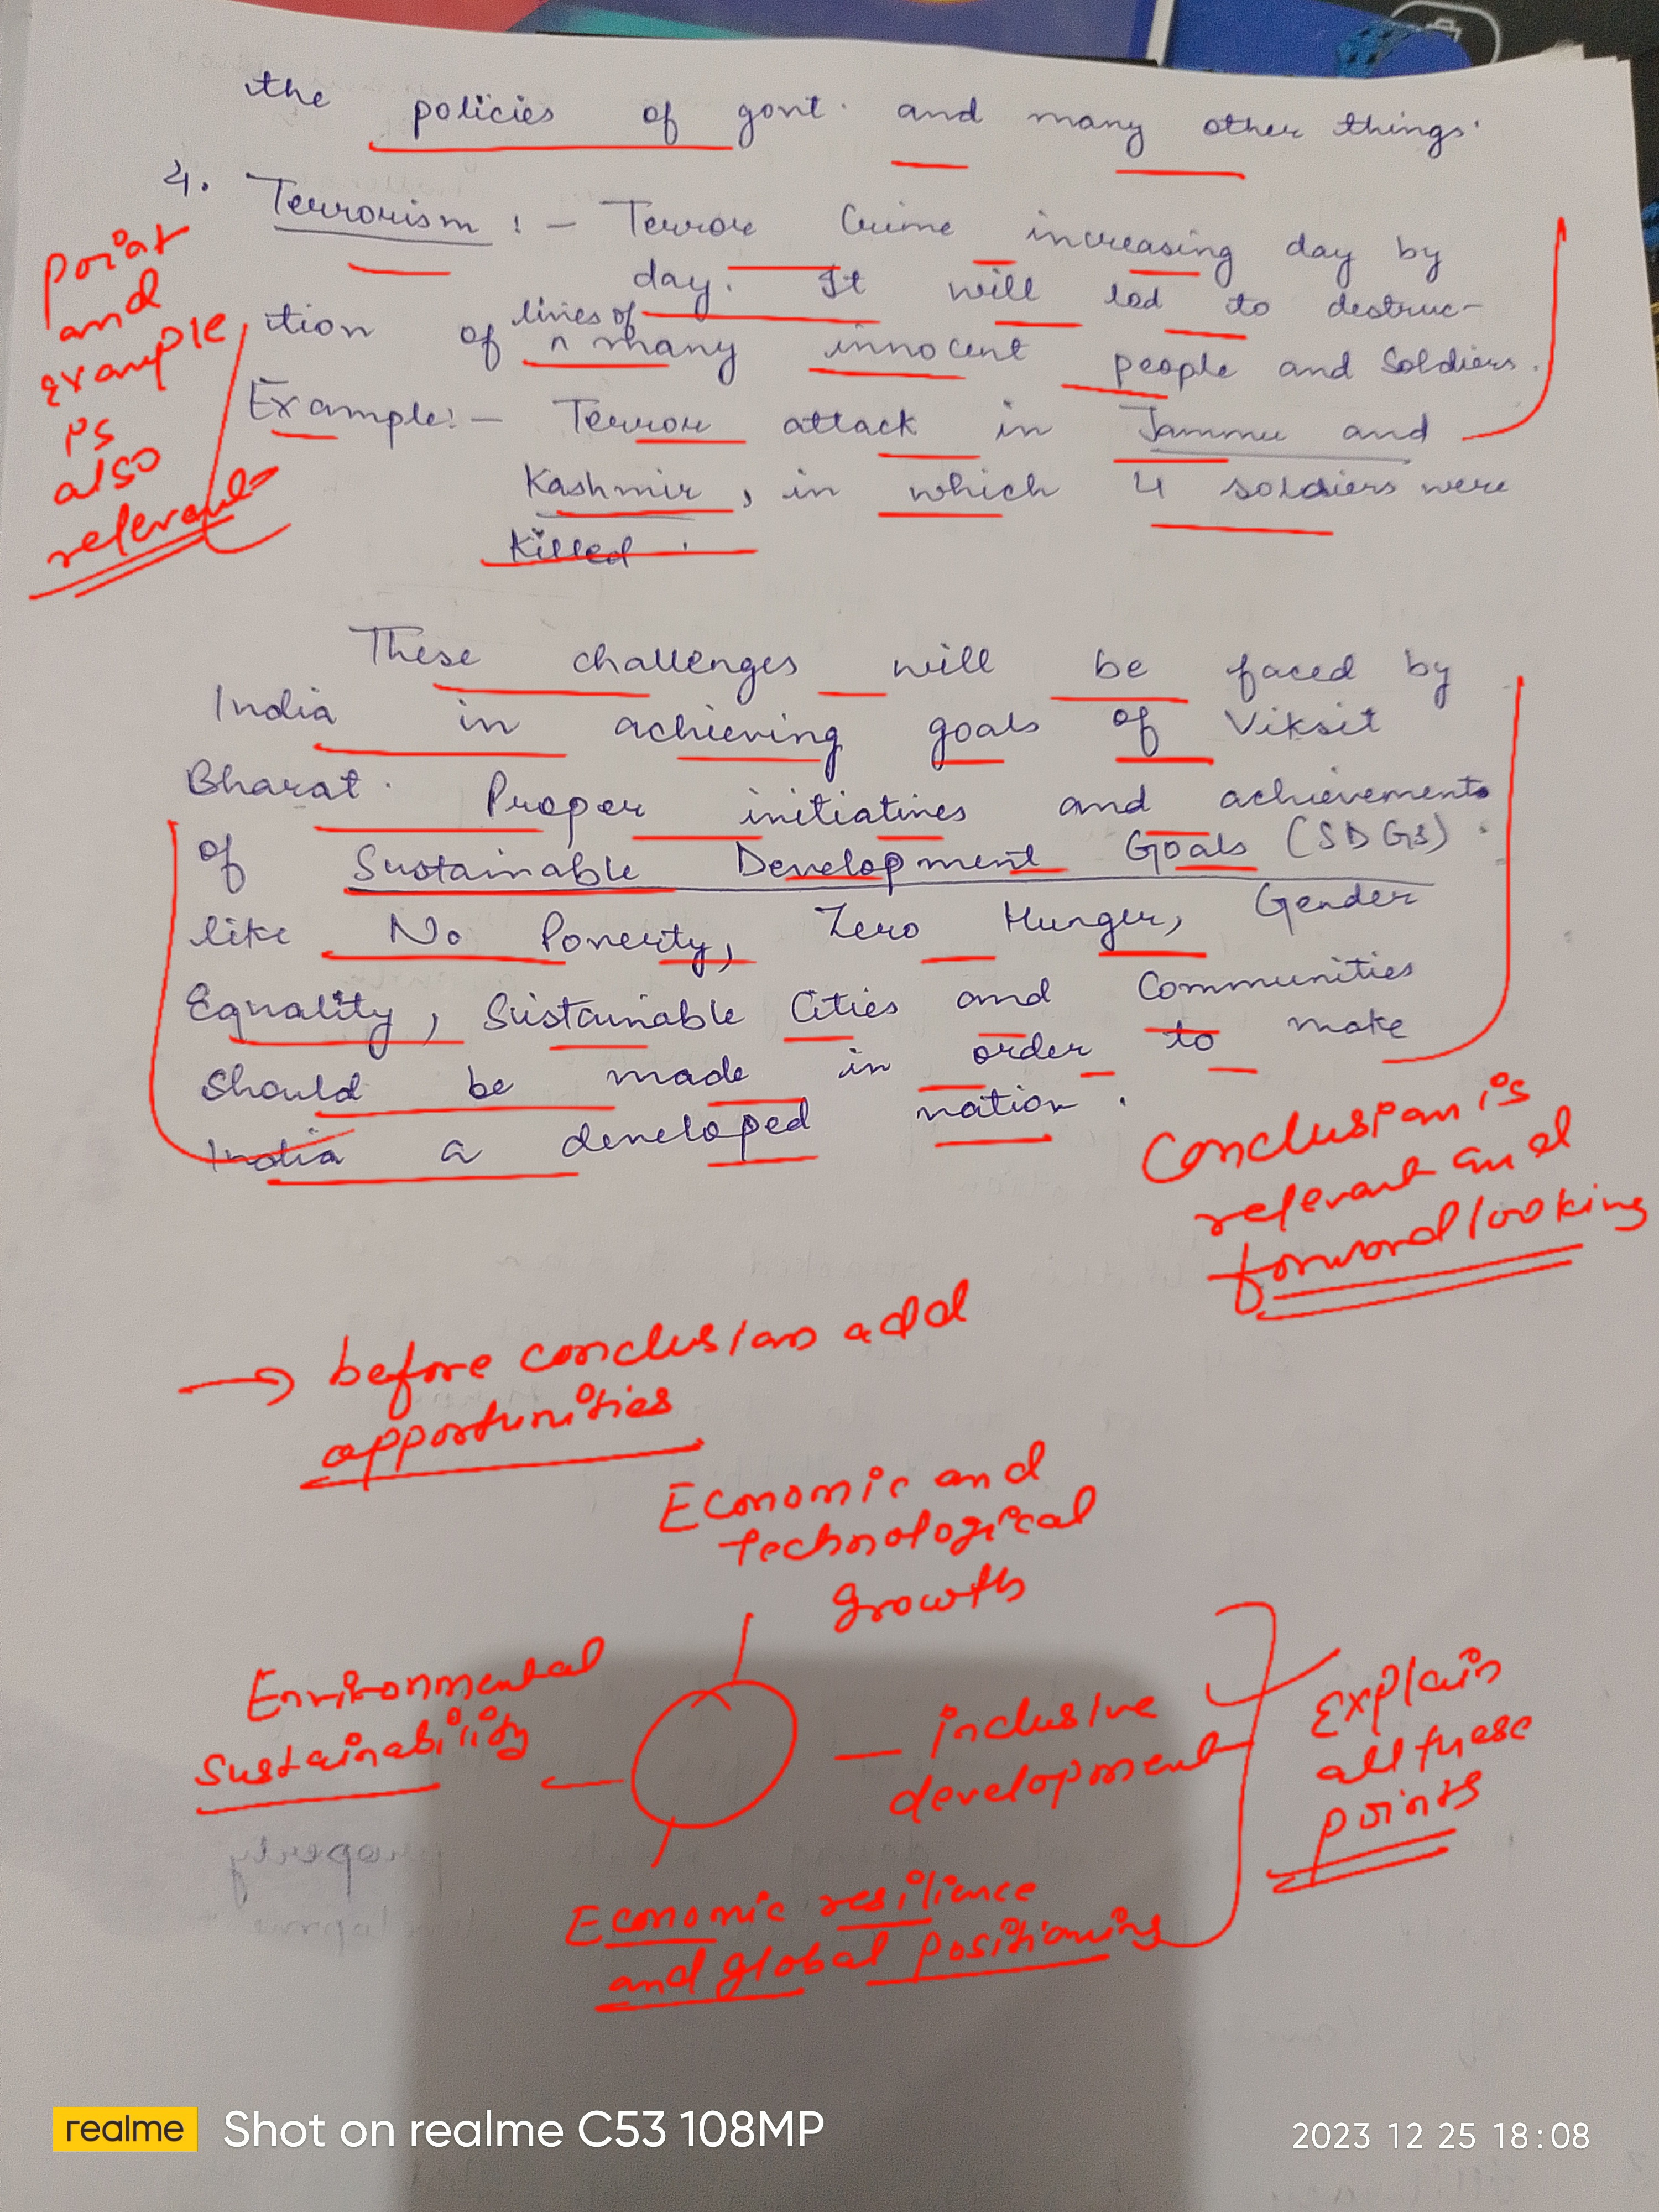 the policies of govt. and many other things.
4. Terrorism :- Terror Crime increasing day by
day. It will led to destruc-
tion of lives of many innocent people and Soldiers.
Example:- Terror attack in Jammu and
Kashmir, in which 4 soldiers were
Killed.
point
and
example
is
also
relevant
These challenges will be faced by
India in achieving goals of Viksit
Bharat. Proper initiatives and achievements
of Sustainable Development Goals (SDGs).
like No Poverty, Zero Hunger, Gender
Equality, Sustainable Cities and Communities
should be made in order to make
India a developed nation.
Conclusion is
relevant and
forward looking
→ before conclusion add
opportunities
Economic and
technological
growth
Environmental
sustainability
inclusive
development
Economic resilience
and global positioning
Explain
all these
points
realme Shot on realme C53 108MP
2023 12 25 18:08